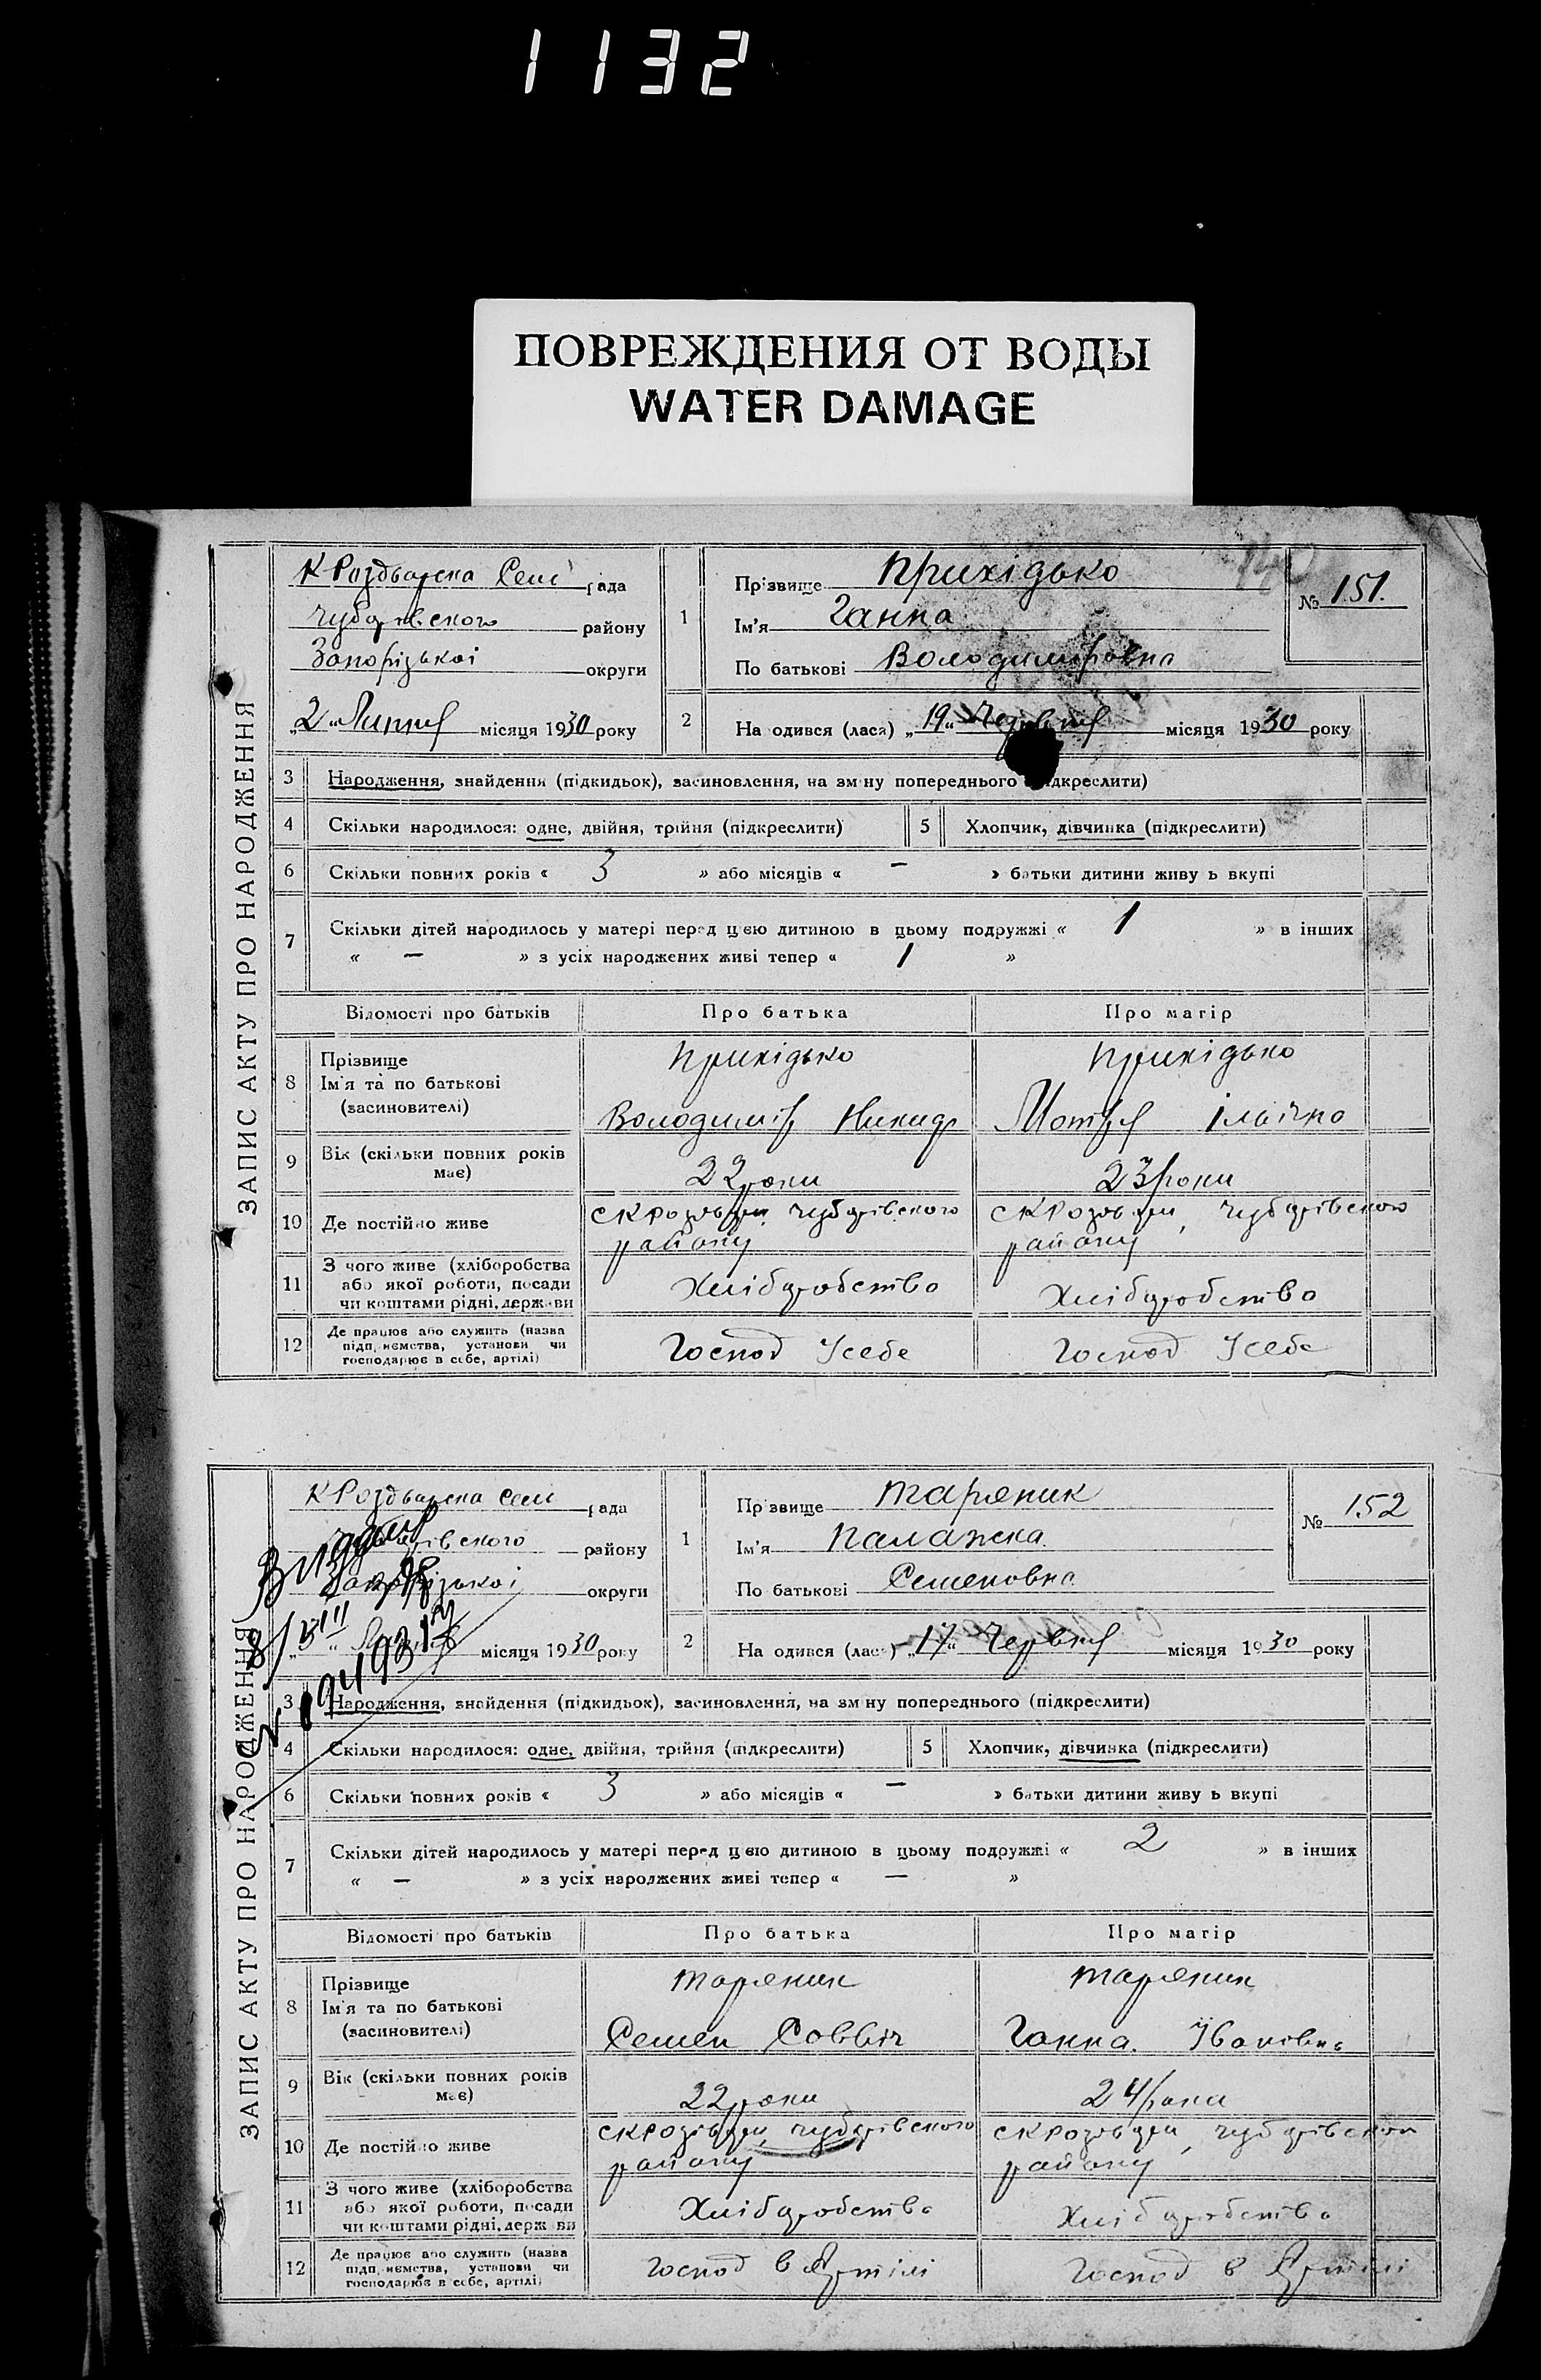 1132
ПОВРЕЖДЕНИЯ ОТ ВОДЫ
WATER DAMAGE
ЗАПИС АКТУ ПРО НАРОДЖЕННЯ
рада
району
Запорізькоі округи
„2“ Липня місяця 1930 року
1
Прізвище Прихідько
Ім'я Ганна
По батькові Володимировна
№ 151.
2
На одився (лася) „19“ Червня місяця 1930 року
3 Народження, знайдення (підкидьок), засиновлення, на зм ну попереднього дкреслити)
4 Скільки народилося: одне, двійня, трійня (підкреслити) 5 Хлопчик, дівчинка (підкреслити)
6 Скільки повних років « 3 » або місяців « — » батьки дитини живу ь вкупі
7 Скільки дітей народилось у матері перед цією дитиною в цьому подружжі « 1 » в інших
« — » з усіх народжених живі тепер « 1 »
Відомості про батьків Про батька Про матір
8 Прізвище Прихідько Прихідько
Ім'я та по батькові
(засиновителі) Володимір Никидр Мотря Ільічна
9 Вік (скільки повних років має) 22 роки 23 роки
10 Де постійно живе чубарівського району чубарівського району
11 З чого живе (хліборобства
або якої роботи, посади
чи коштами рідні, держави Хліборобство Хліборобство
12 Де працює або служить (назва
підп иємства, установи чи
господарює в себе, артілі) Господ Усебе Господ Усебе
ЗАПИС АКТУ ПРО НАРОДЖЕННЯ
рада
району
округи
місяця 1930 року
1
Прізвище Тараник
Ім'я Палажка
По батькові Семеновна
№ 152
2
На одився (лася) „17“ Червня місяця 1930 року
3 Народження, знайдення (підкидьок), засиновлення, на зм ну попереднього (підкреслити)
4 Скільки народилося: одне, двійня, трійня (підкреслити) 5 Хлопчик, дівчинка (підкреслити)
6 Скільки повних років « 3 » або місяців « — » батьки дитини живу ь вкупі
7 Скільки дітей народилось у матері перед цією дитиною в цьому подружжі « 2 » в інших
« — » з усіх народжених живі тепер « — »
Відомості про батьків Про батька Про матір
8 Прізвище Тараник Тараник
Ім'я та по батькові
(засиновителі) Семен Соввіч Ганна Івановна
9 Вік (скільки повних років має) 22 роки 24 роки
10 Де постійно живе чубарівського району чубарівського району
11 З чого живе (хліборобства
або якої роботи, посади
чи коштами рідні, держави Хліборобство Хліборобство
12 Де працює або служить (назва
підп иємства, установи чи
господарює в себе, артілі) Господ в Артілі Господ в Артілі